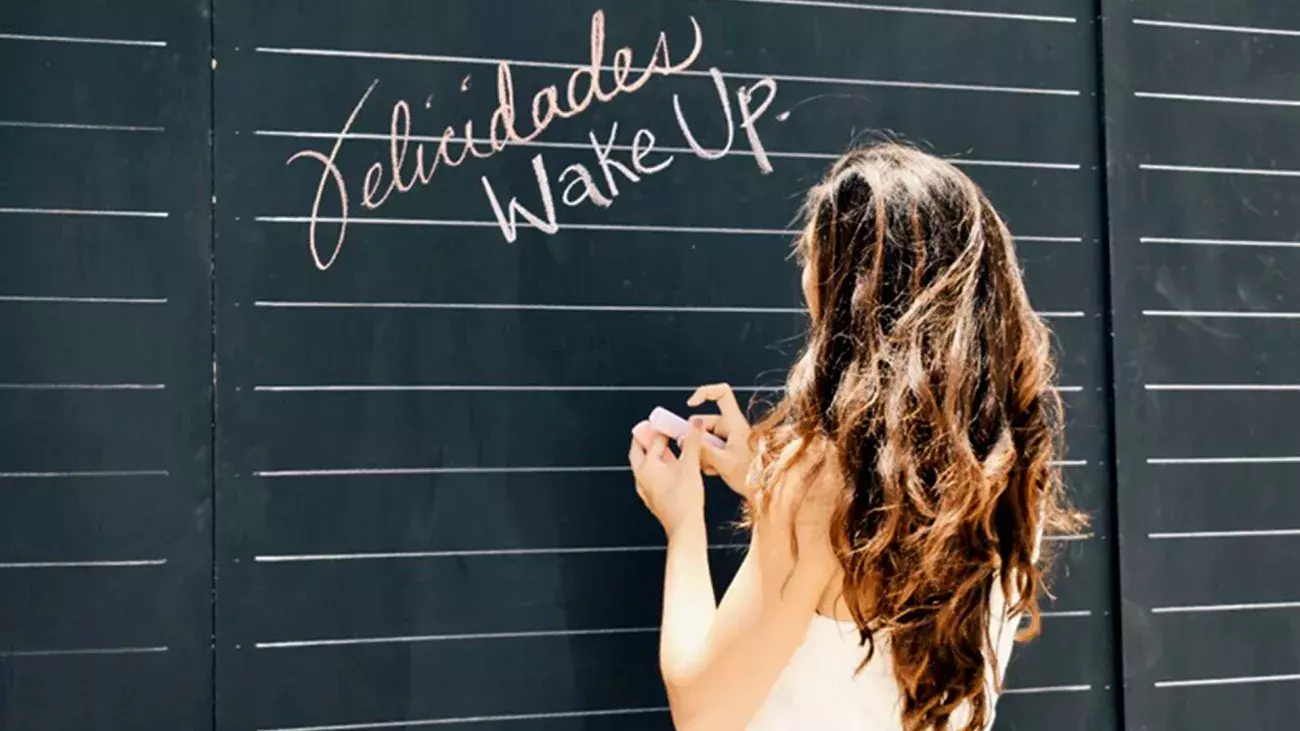 Felicidades
Wake Up.